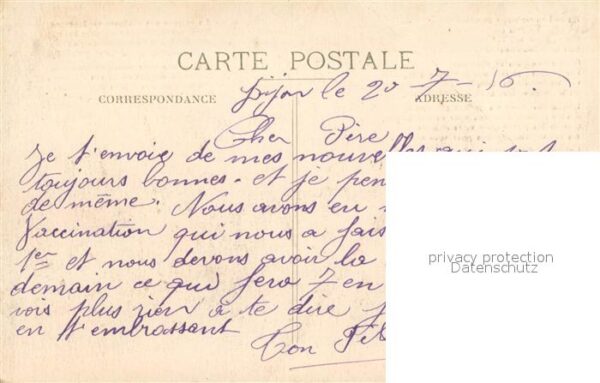 CARTE POSTALE
CORRESPONDANCE
ADRESSE
Dijon le 20-7-16
Cher Père
Je t'envoie de mes nouvelles qui sont
toujours bonnes - et je pen
de même. Nous avons eu
Vaccination qui nous a fais
1er et nous devons avoir la
demain ce qui fera 7 en
vois plus rien à te dire
en t'embrassant
Ton Fils
privacy protection
Datenschutz